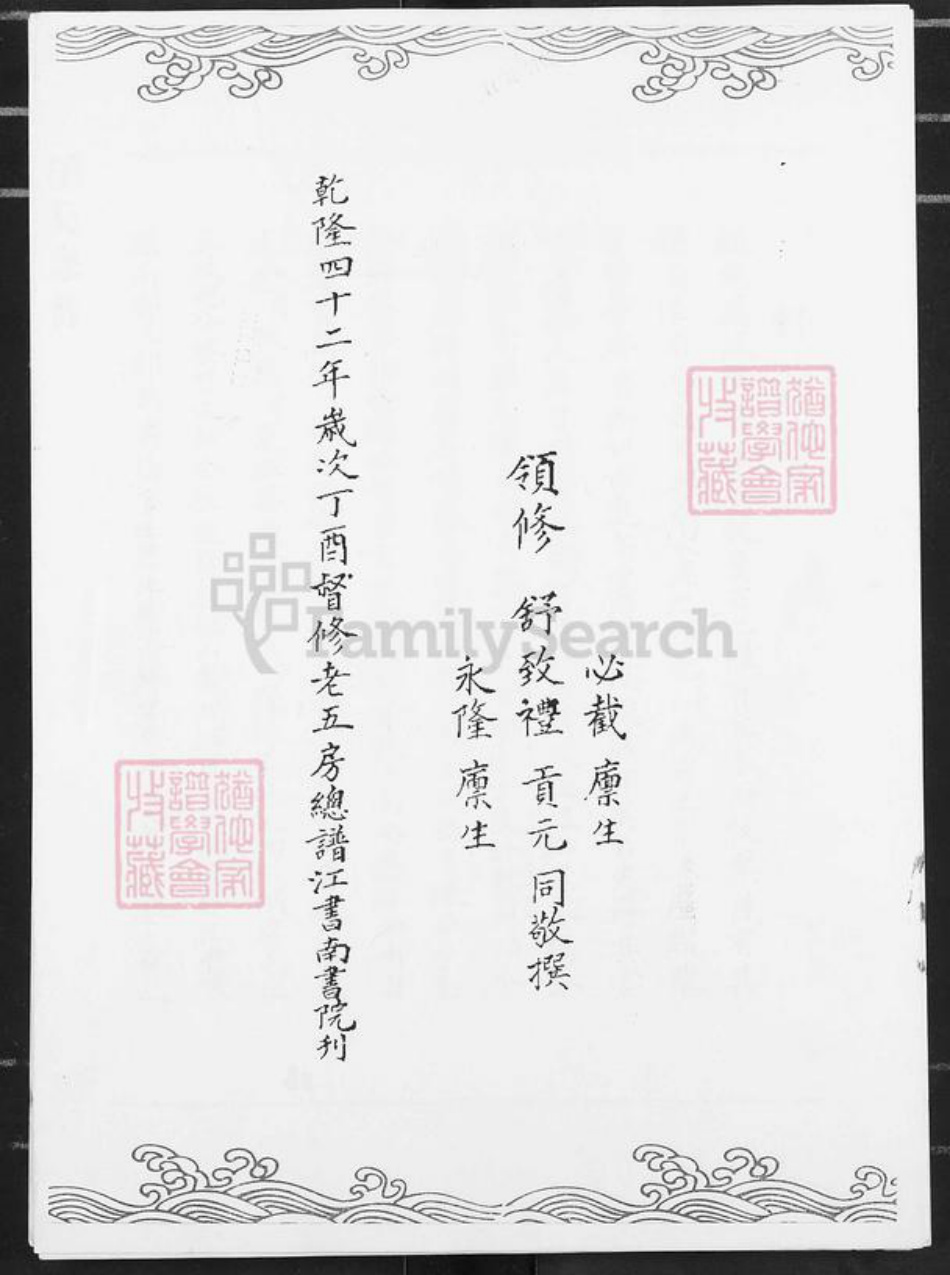 猶他家
譜學會
收藏
必截 廪生
領修 舒致禮 貢元 同敬撰
永隆 廪生
乾隆四十二年嵗次丁酉督修老五房總譜江書南書院刊
猶他家
譜學會
收藏
FamilySearch